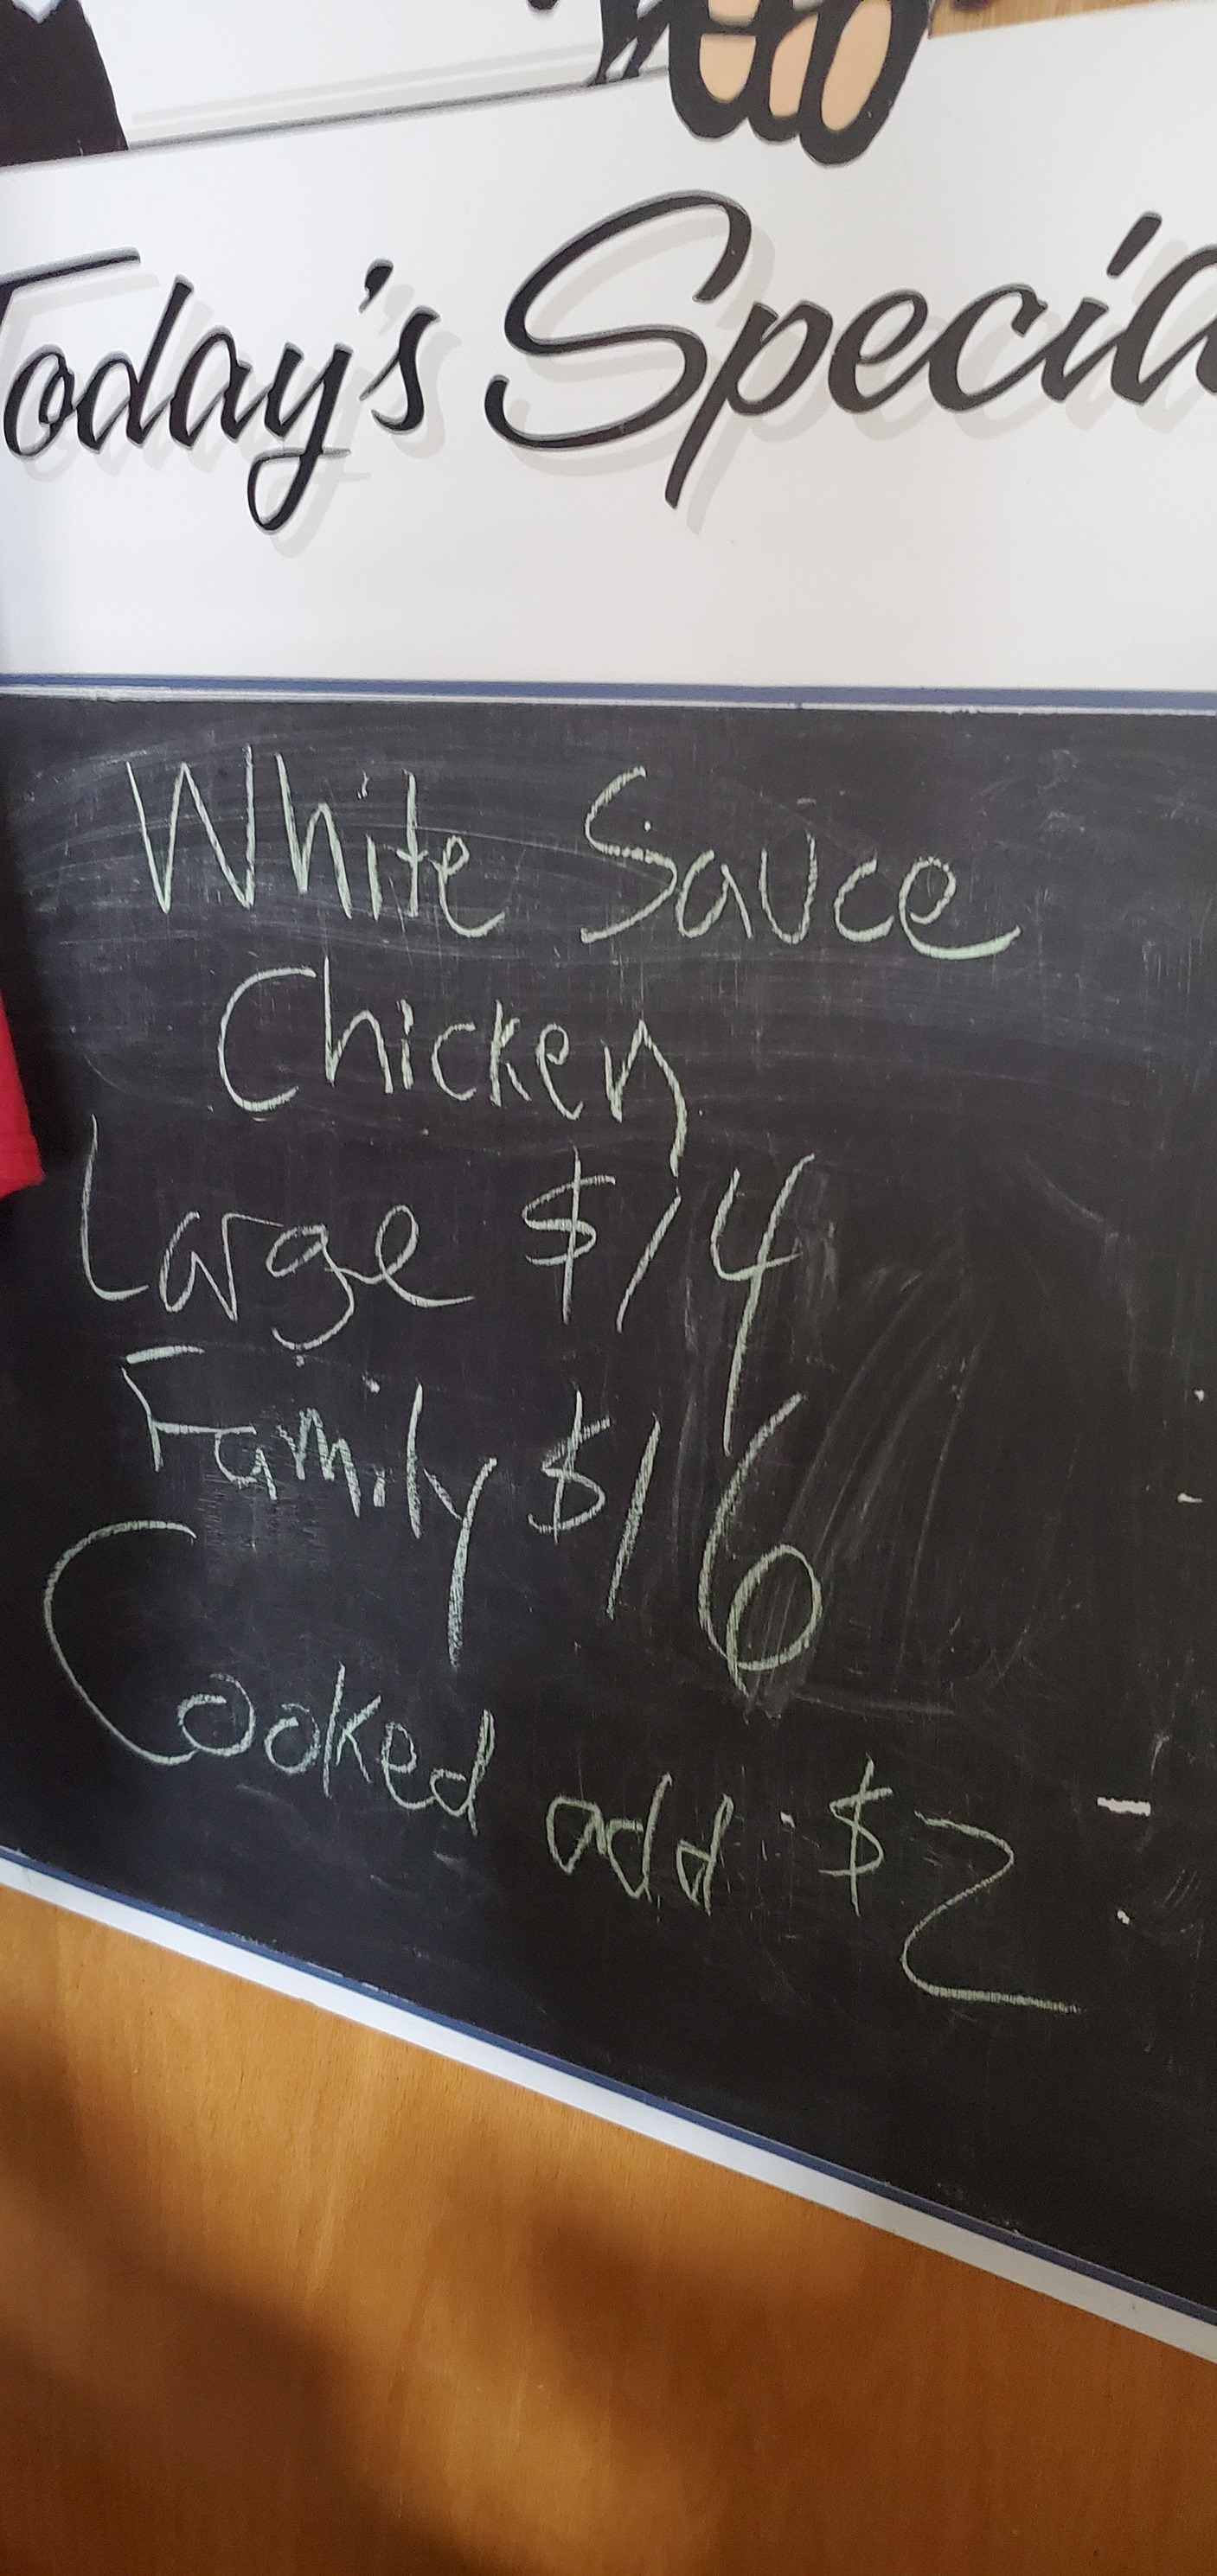 Today's Specia
White Sauce
Chicken
Large $14
Family $16
Cooked add $2